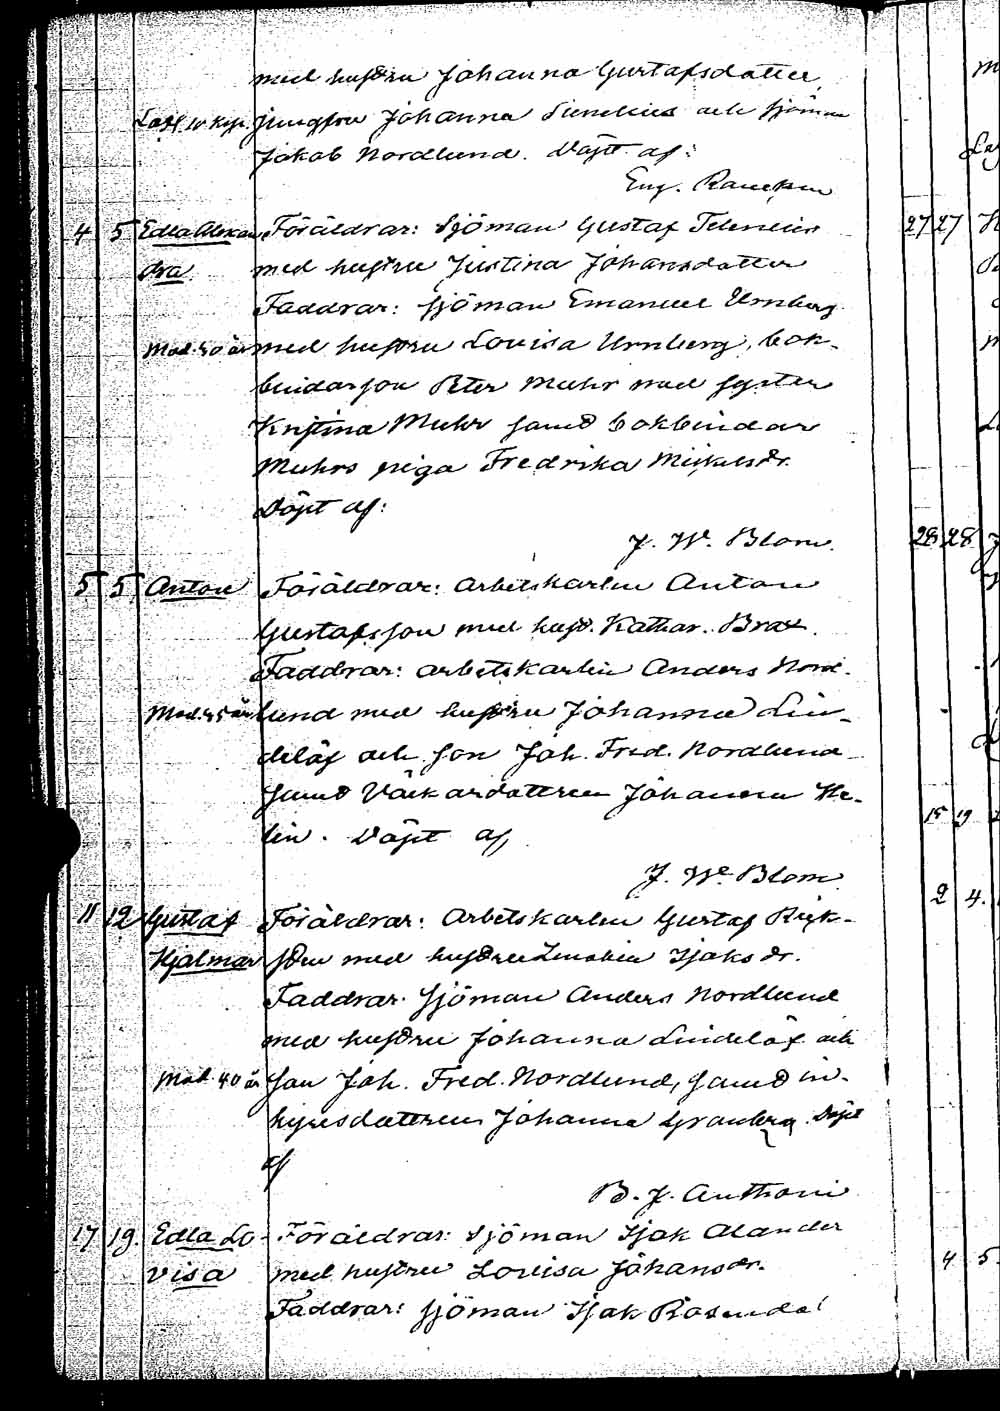 med hustru Johanna Gustafsdotter,
jungfru Johanna och sjöman
Jakob Nordlund. Döpt af:
Eug.
4 5 Edla Alexan Föräldrar: Sjöman Gustaf
dra med hustru Justina Johansdotter
Faddrar: sjöman Emanuel Urnberg
Mod. 40 år med hustru Lovisa Urnberg, bok-
bindarson Peter Muhr med syster
Kristina Muhr samt bokbindar
Muhrs piga Fredrika Mickelsdr.
Döpt af:
J. W. Blom.
5 5 Anton Föräldrar: Arbetskarlen Anton
Gustafsson med hust. Kathar. Brax.
Faddrar: arbetskarlen Anders Nord-
Mod. 45 år lund med hustru Johanna Lin-
delöf och son Joh. Fred. Nordlund
samt Johanna He-
lin. Döpt af
J. W. Blom
11 12 Gustaf Föräldrar: Arbetskarlen Gustaf
Hjalmar med hustru Isaksdr.
Faddrar: sjöman Anders Nordlund
med hustru Johanna Lindelöf och
Mod. 40 år son Joh. Fred. Nordlund, samt in-
hysesdottren Johanna Granberg. Döpt
af
B. J. Anthoni
17 19. Edla Lo- Föräldrar: Sjöman Isak Alander
visa med hustru Lovisa Johansdr.
Faddrar: sjöman Isak Rosendal
27 27
28 28
15 19
2 4.
4 5.